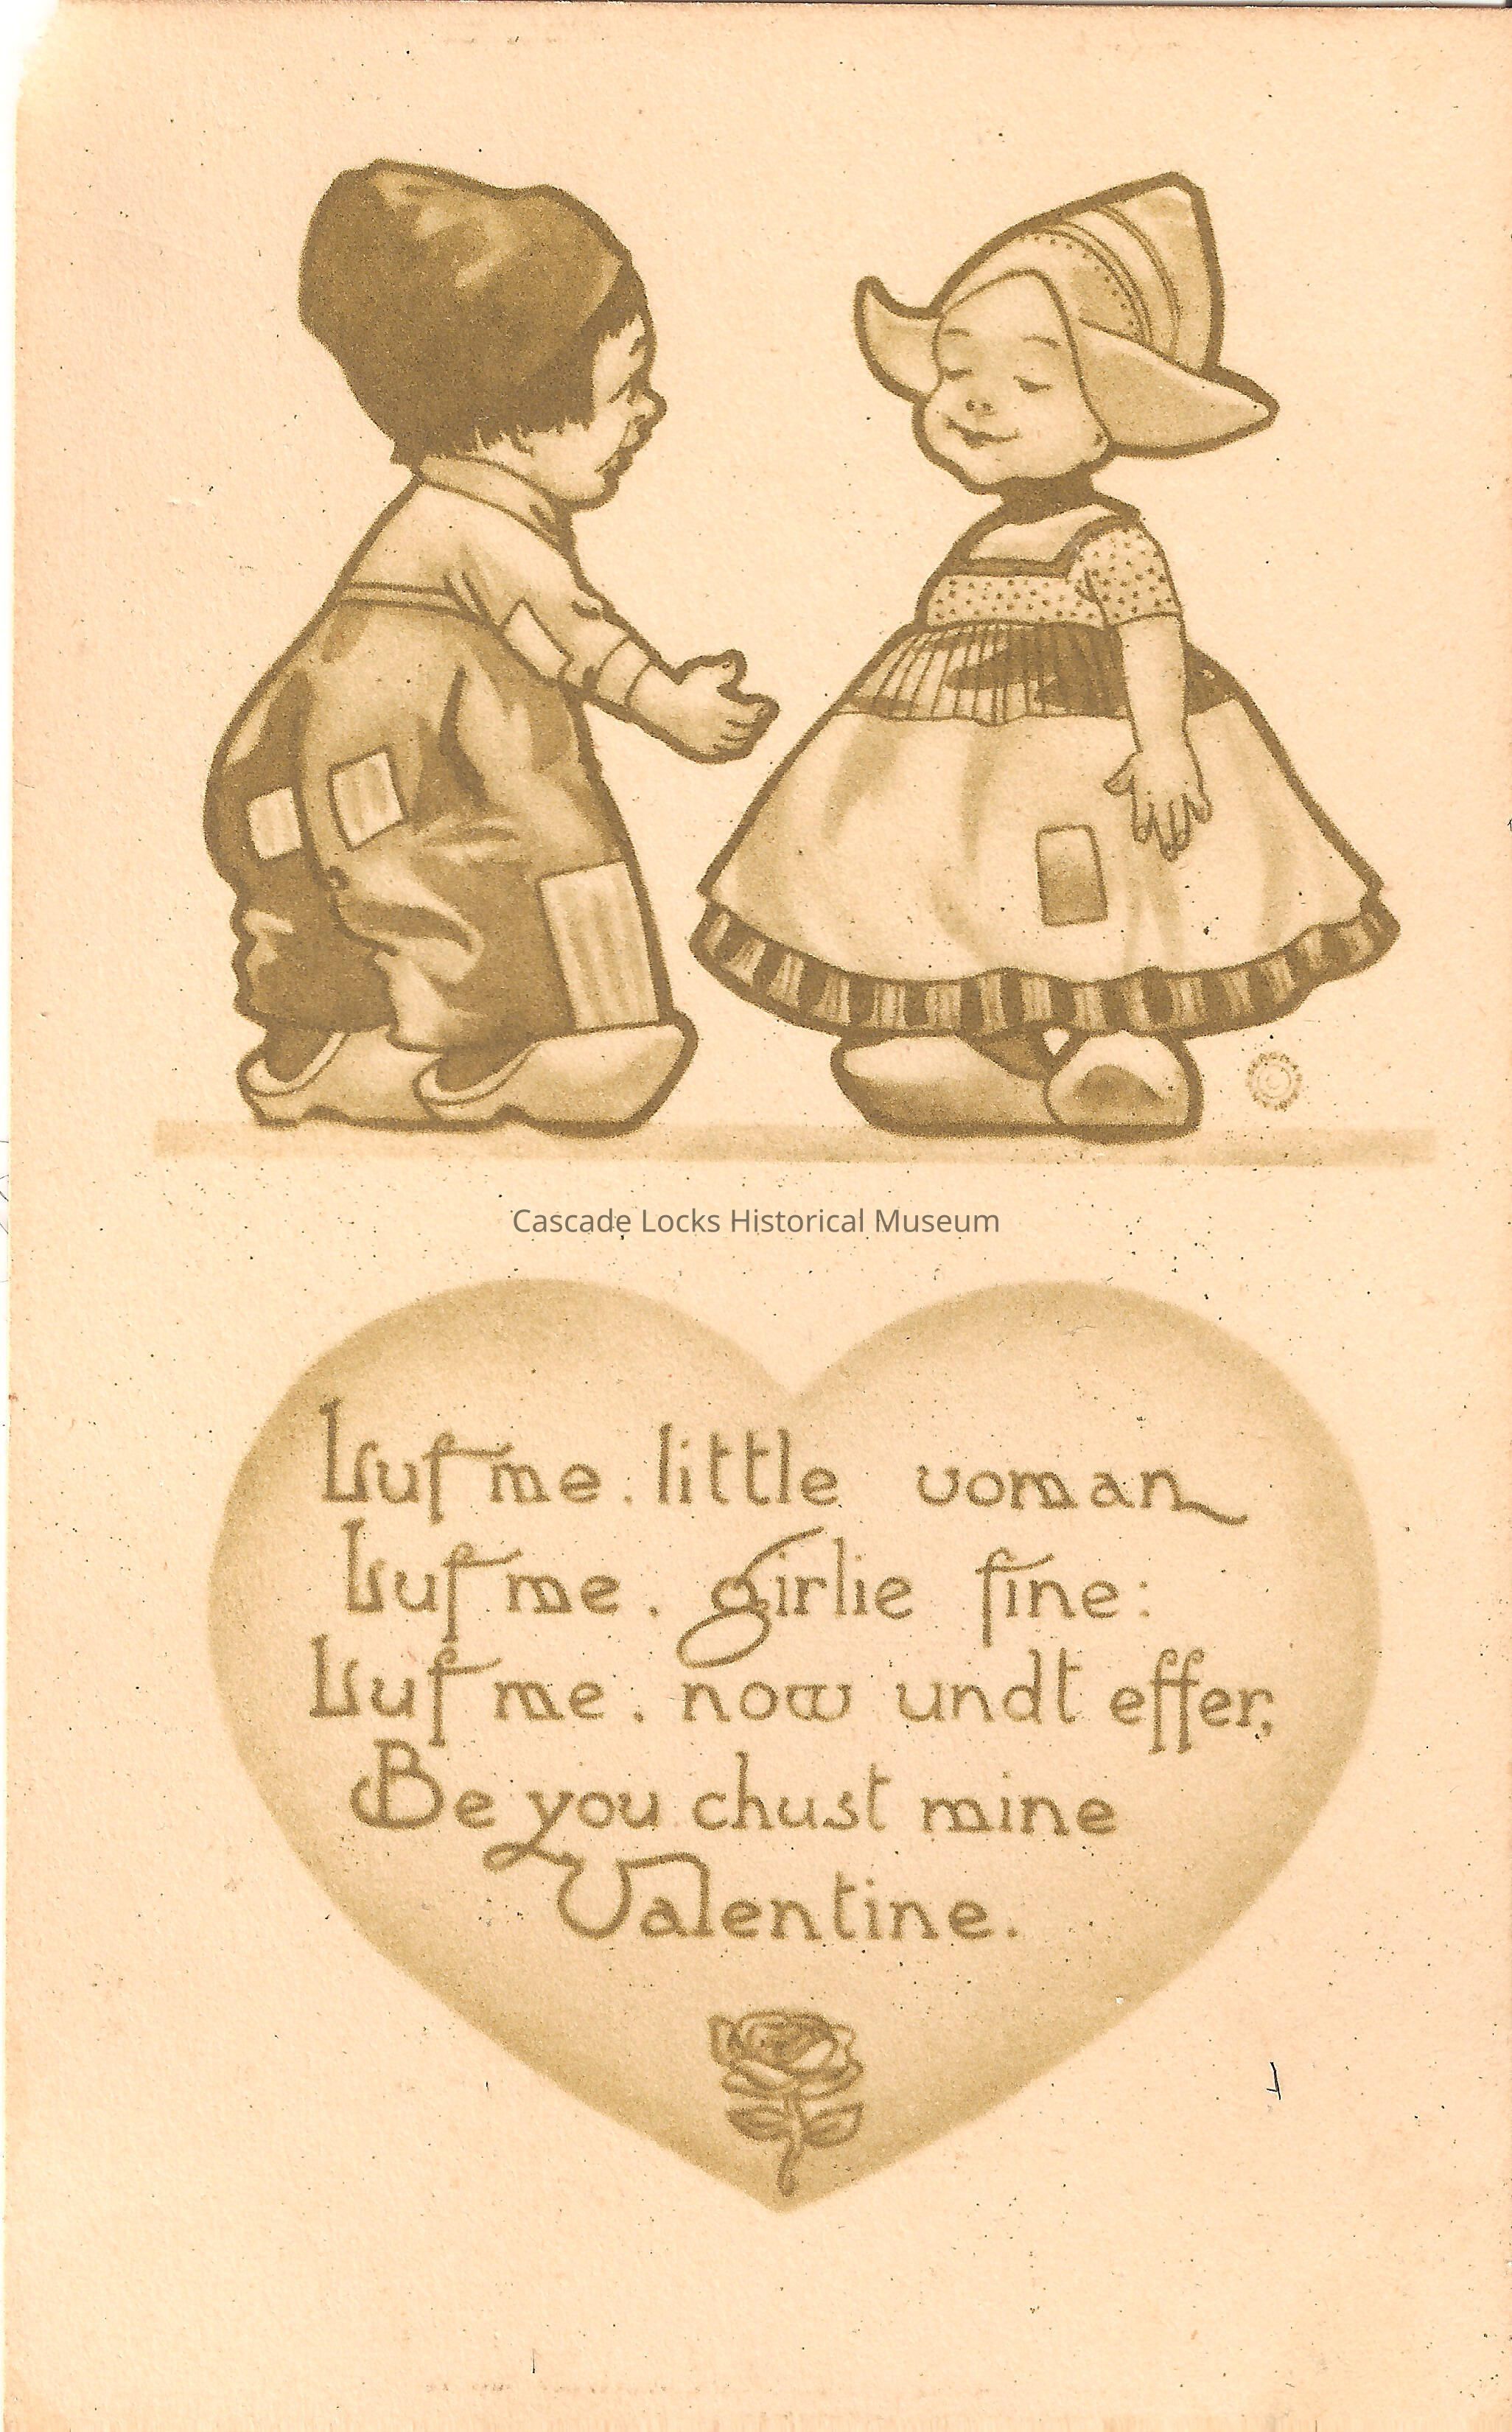 Cascade Locks Historical Museum
Luf me. little voman
Luf me. girlie fine:
Luf me. now undt effer,
Be you chust mine
Valentine.